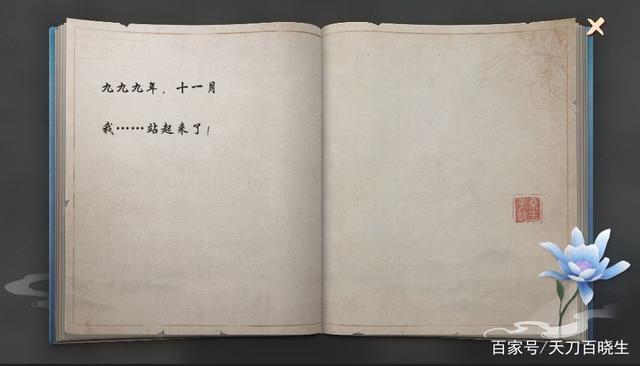 九九九年，十一月
我……站起来了！
百家号/天刀百晓生